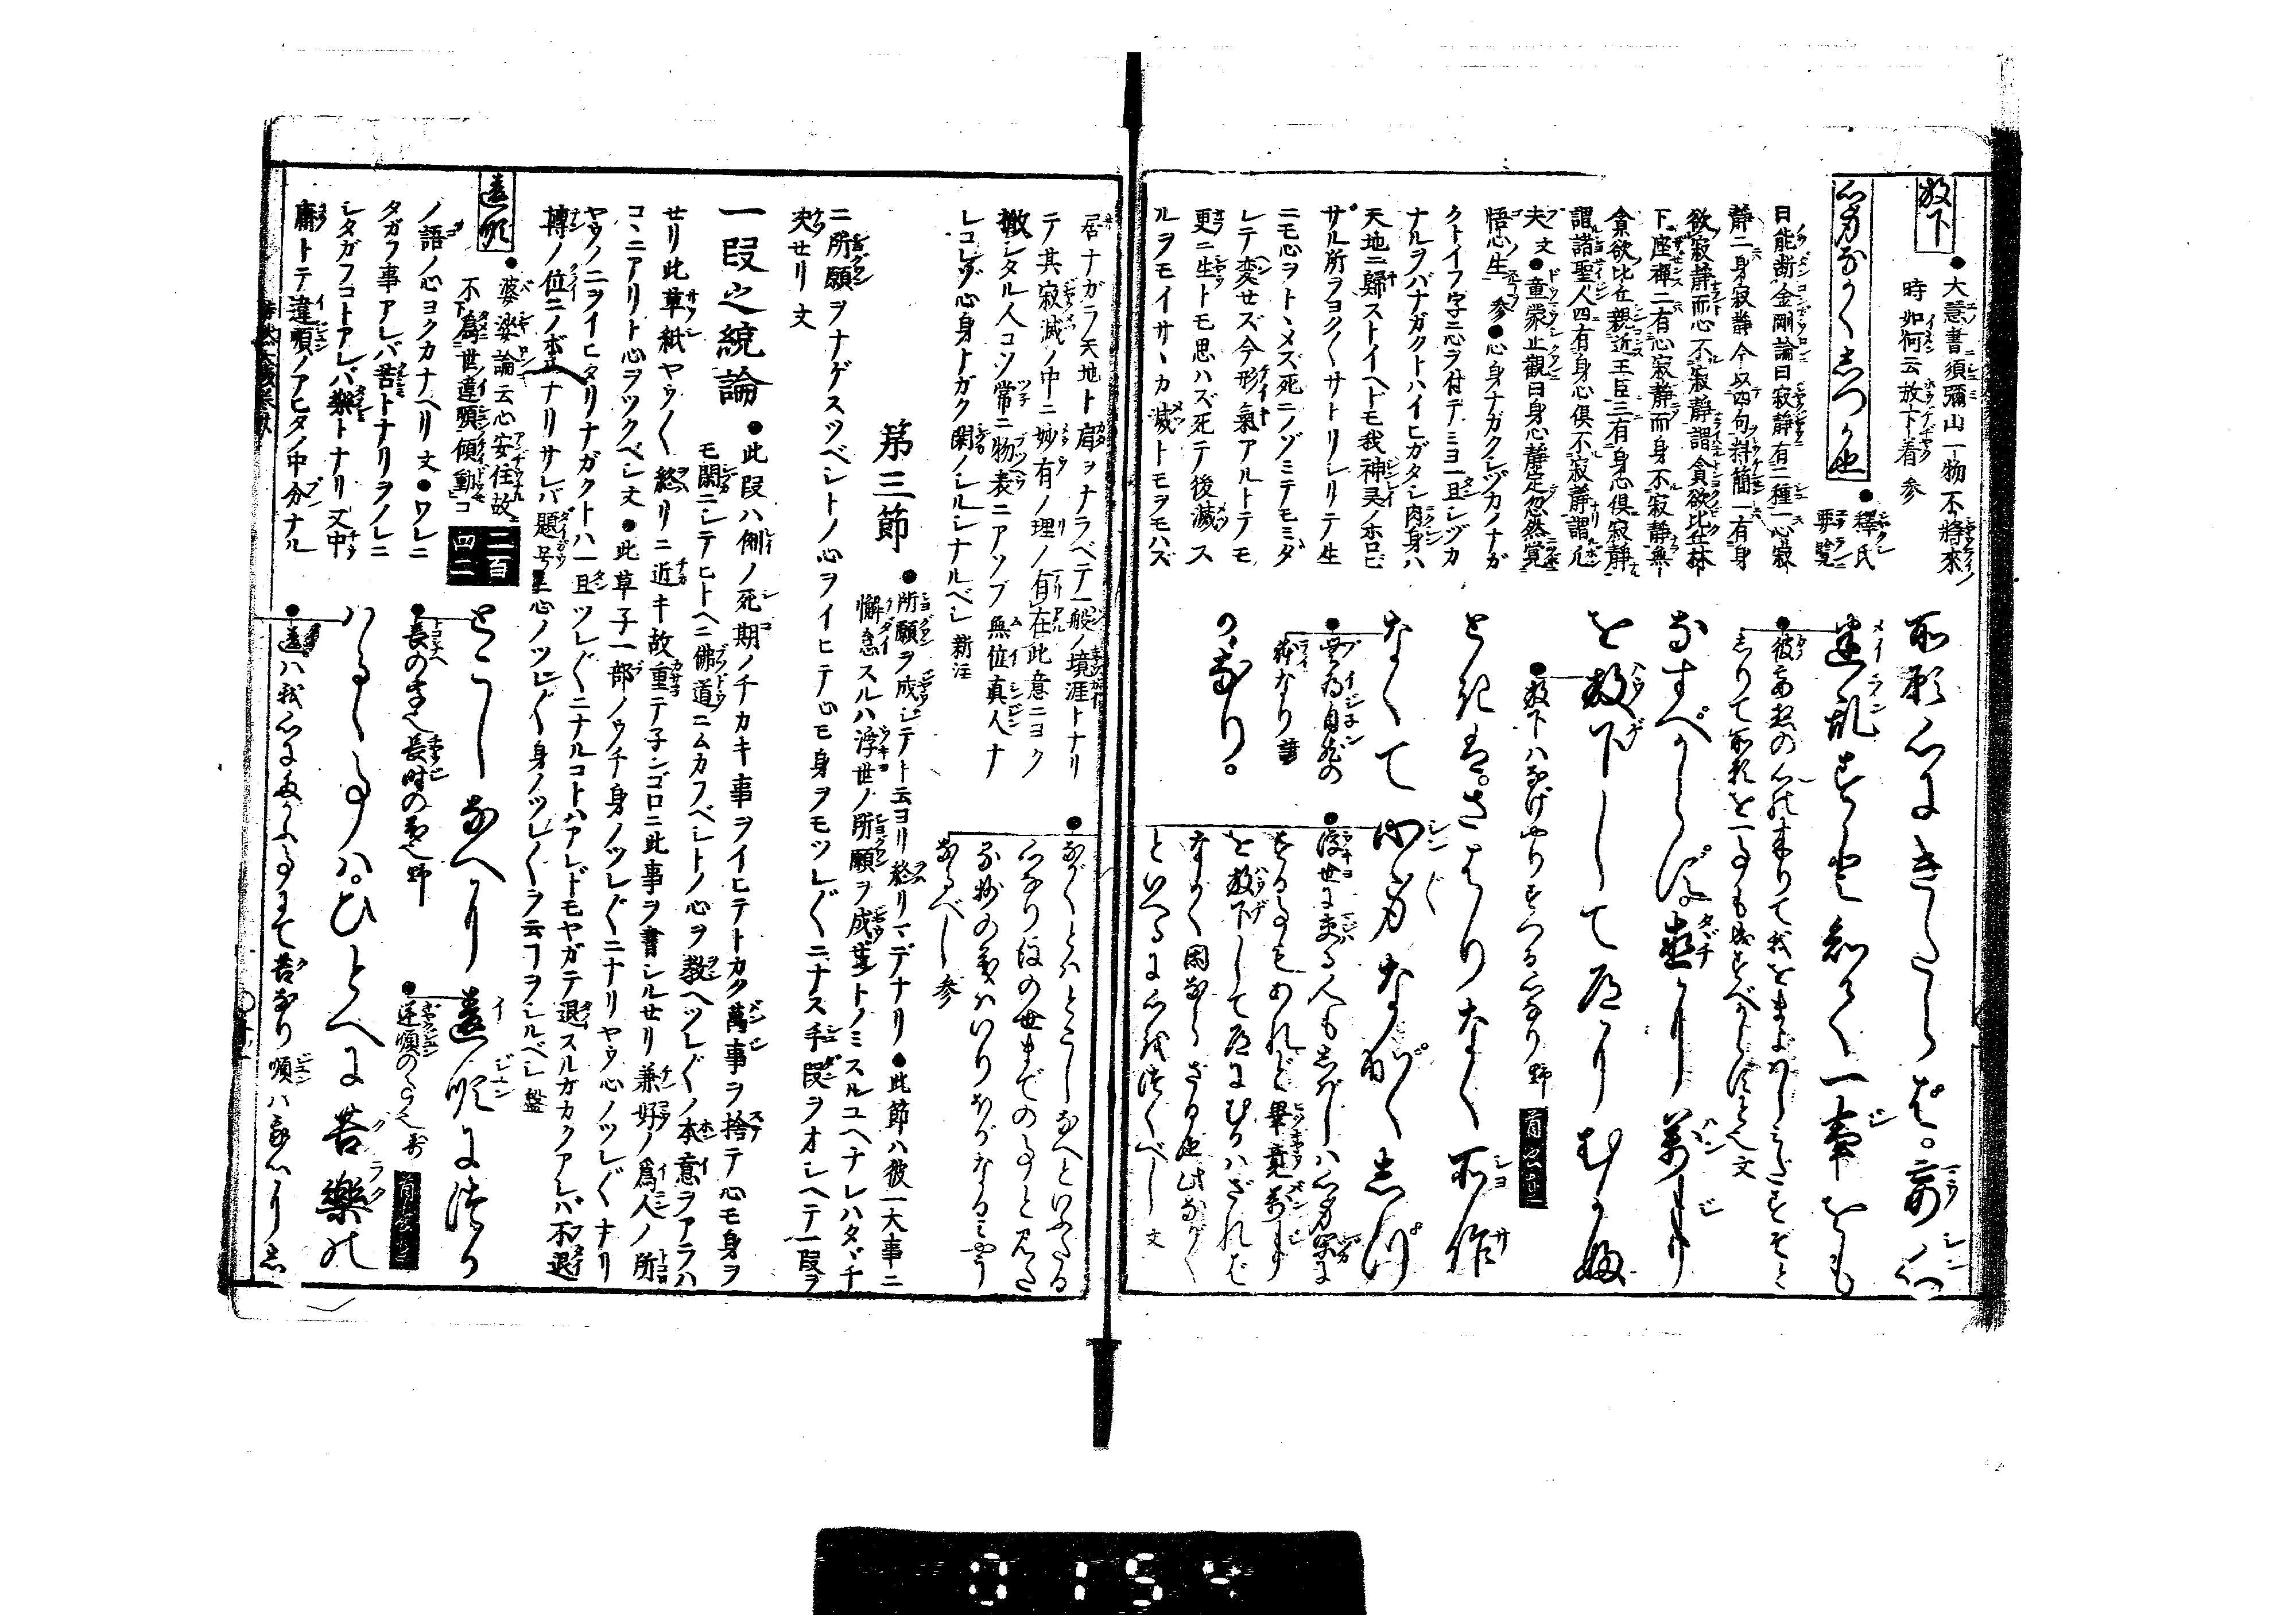 放下
●大慧書須彌山一物不將來
時如何云放下着 参
心身ながくしづか也
●釋氏
要覧
曰能断金剛論曰寂静有二種一心寂
静二身寂静今以四句料簡一有身
欲寂静而心不寂静謂貪欲比丘林
下座禅二有心寂静而身不寂静無
貪欲比丘親近王臣三有身心倶寂静
謂諸聖人四有身心倶不寂静謂凡
夫 文●童蒙止觀曰身心静定忽然覚
悟心生 参●心身ナガクシヅカノナガ
クトイフ字ニ心ヲ付テミヨ一旦シヅカ
ナルヲバナガクトハイヒガタシ肉身ハ
天地ニ歸ストイヘドモ我神灵ノホロビ
ザル所ヲヨク〱サトリシリテ生
ニモ心ヲトヾメズ死ニノゾミテモミダ
レテ変セズ今形氣アルトテモ
更ニ生トモ思ハズ死テ後滅ス
ルヲモイサヽカ滅トモヲモハズ
所願心にきたらば。妄心
迷乱すと知て一事をも
●彼妄想の心の来りて我をまよはしみだすぞと
しりて所願を一事も成すべからずと也 文
なすべからず。直に萬事
を放下して道にむかふ
●放下ハなげやりすつる心なり 野
とき。さはりなく所作
なくて心身ながくしづ
●無為自然の
躰なり 諺
●浮世に交る人もしばしハ心身閑に
する事もあれど畢竟萬事
を放下して道にむかハざれば
ながく閑ならざる也此ながく
といへるに心を付べし 文
かなり。
居ナガラ天地ト肩ヲナラベテ一般ノ境涯トナリ
テ其寂滅ノ中ニ妙有ノ理ノ有在此意ニヨク
撤シタル人コソ常ニ物表ニアソブ無位真人ナ
レコレヲ心身トガク閑ノシルシナルベシ 新注
●ながくとハとこしなへといふたる
心なり後の世までの事と見た
なるべし 参
第三節
●所願ヲ成シテト云ヨリ終リマデナリ●此節ハ彼一大事ニ
懈怠スルハ浮世ノ所願ヲ成葉トノミスルユヘナレハタヾチ
ニ所願ヲナゲスツベシトノ心ヲイヒテ心モ身ヲモツレ〲ニナス手段ヲオシヘテ一段ヲ
决せリ 文
一段之統論
●此段ハ例ノ死期ノチカキ事ヲイヒテトカク萬事ヲ捨テ心モ身ヲ
モ閑ニシテヒトヘニ佛道ニムカフベシトノ心ヲ教ヘツレ〲ノ本意ヲアラハ
せリ此草紙ヤウ〱終リニ近キ故重テ子ンゴロニ此事ヲ書シルせリ兼好ノ爲人ノ所
コヽニアリト心ヲツクベシ 文●此草子一部ノウチ身ノツレ〲ニナリヤウ心ノツレ〲ナリ
ヤウノニヲイヒタリナガクトハ一旦ツレ〲ニナルコトハアレドモヤガテ退スルガカクアレバ不退
轉ノ位ニノボルナリサレバ題号ニ心ノツレ〲身ノツレ〲ヲ云フヲシルベシ 盤
違順
●婆娑論云心安住故
不爲世違順傾動コ
ノ語ノ心ヨクカナヘリ 文●ワレニ
タガフ事アレバ苦トナリヲノレニ
シタガフコトアレバ樂トナリ又中
庸トテ違順ノアヒダノ中分ナル
二百
四二
とこしなへに違順につか
●長の字也長時の義也 野
●逆順の事也 寿
はるゝ事ハ。ひとへに苦樂の
●違ハ我心にたがふ事にて苦なり順ハ我心に
0154